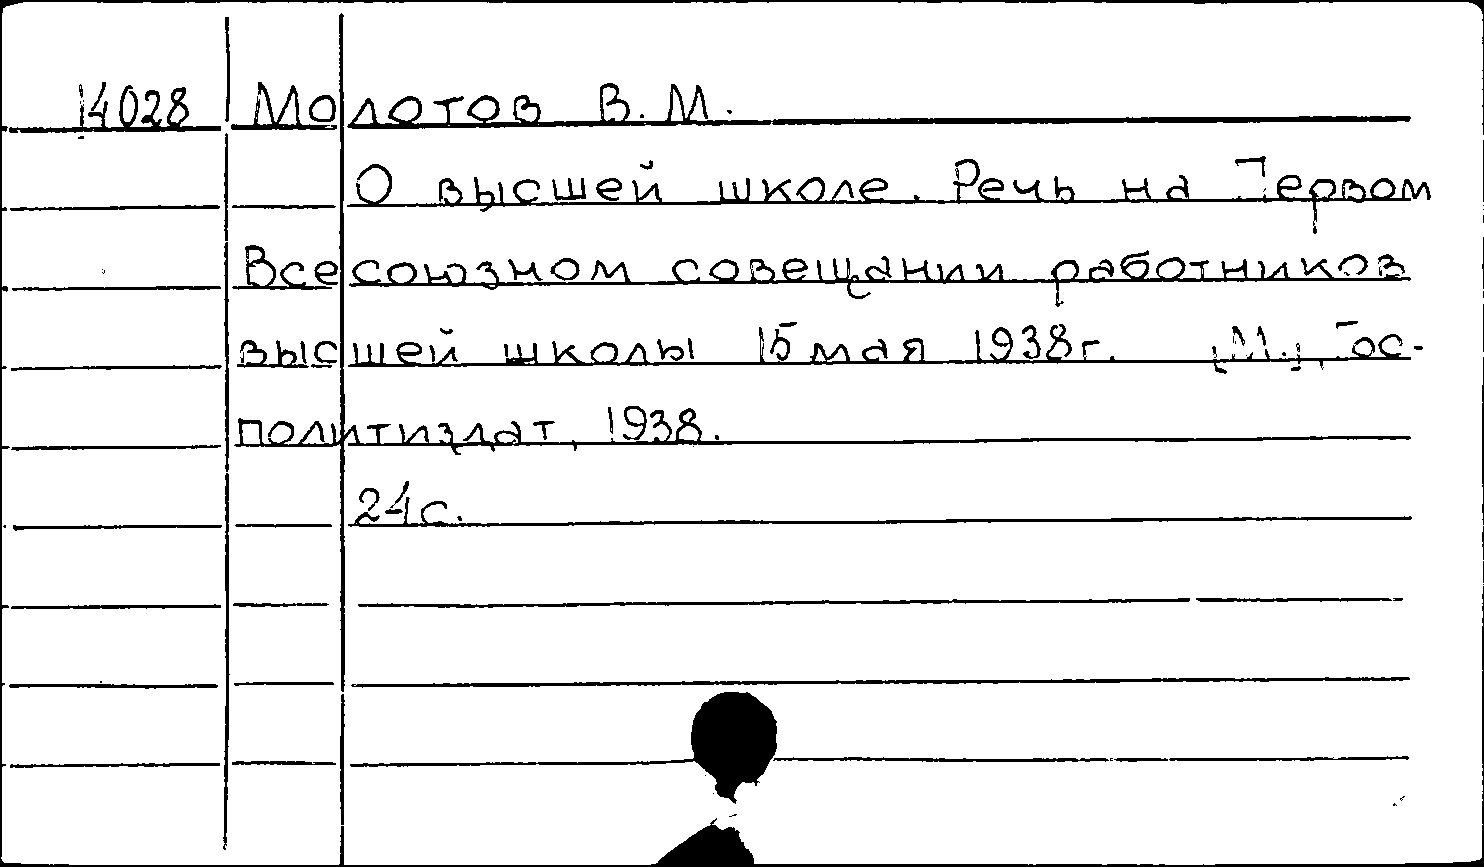 14028 Молотов В.М.
О высшей школе. Речь на Первом
Всесоюзном совещании работников
высшей школы 15 мая 1938г. [М.], Гос-
политиздат, 1938.
24с.